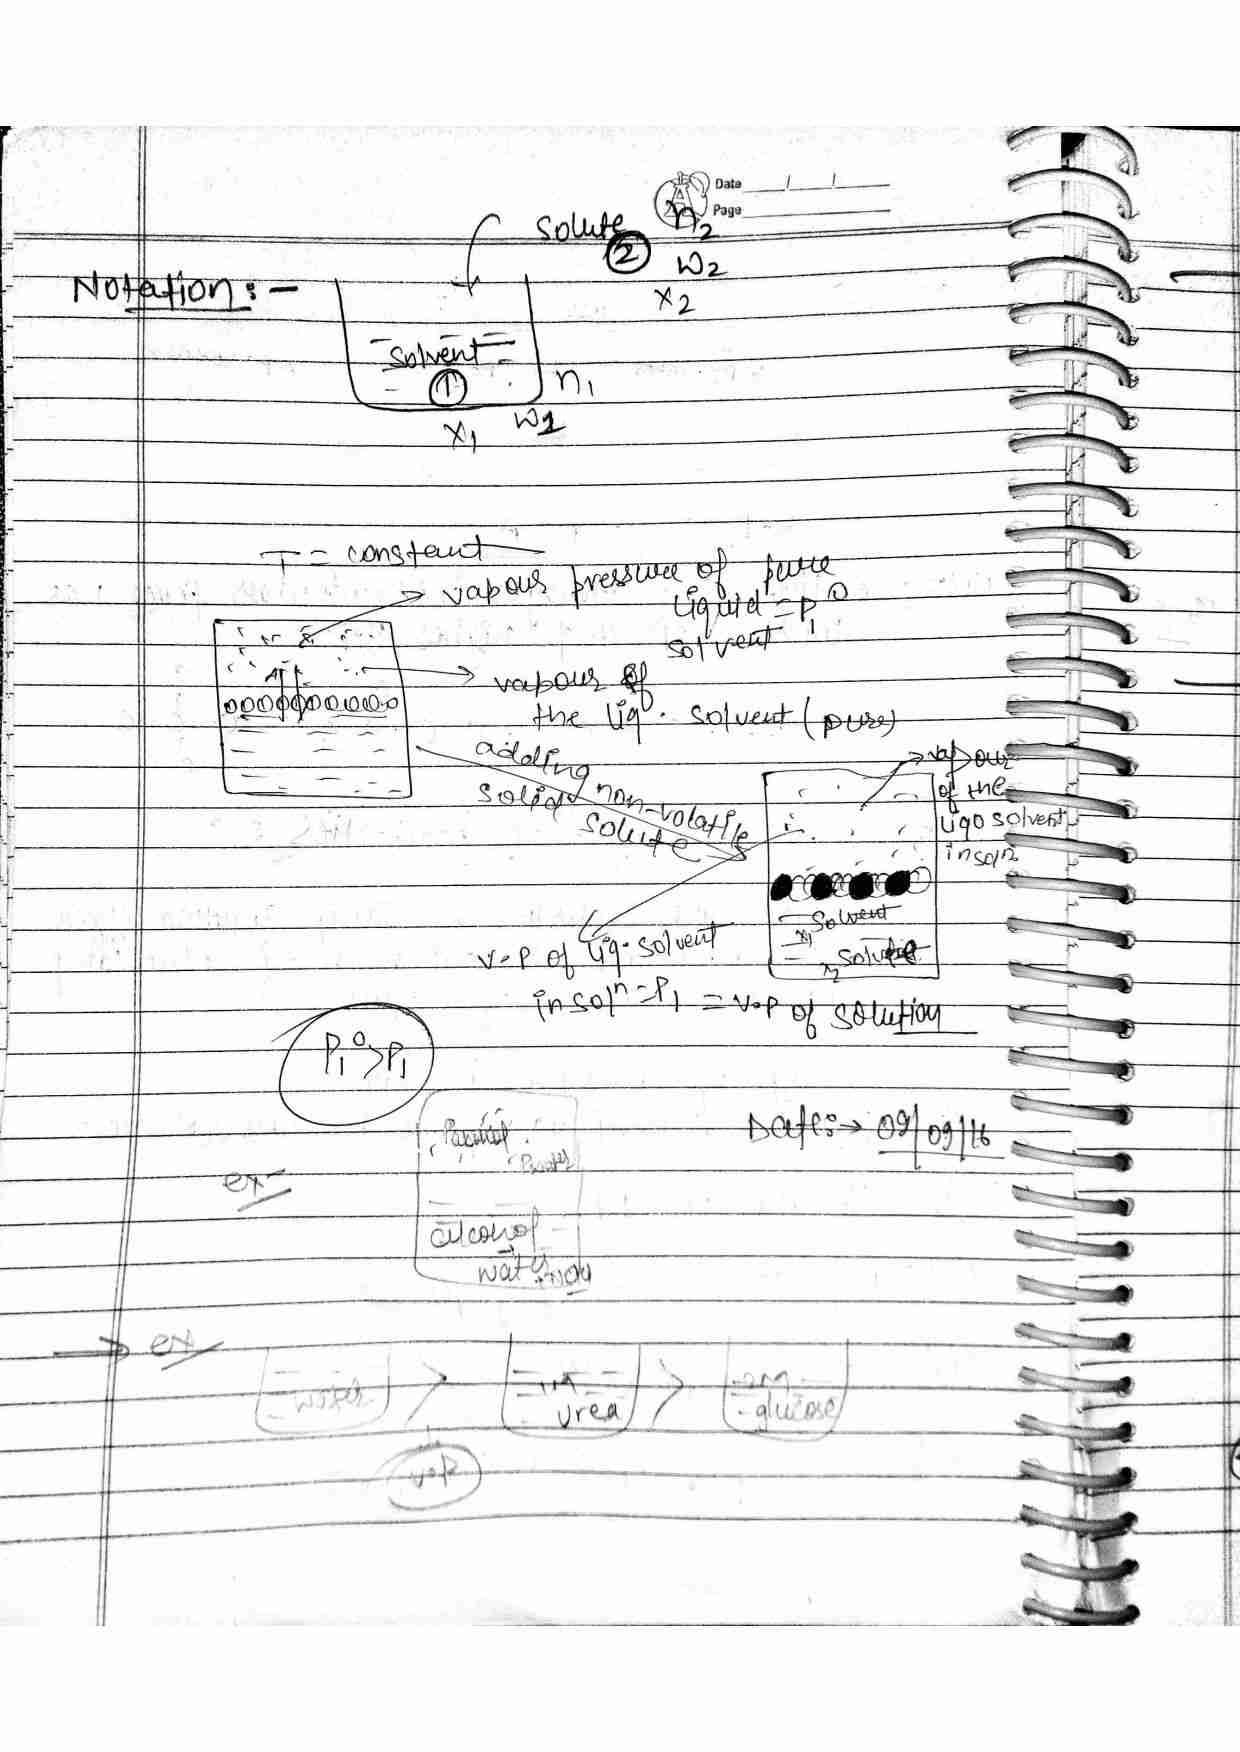 Date / /
Page
Solute n2
2 w2
x2
Notation:-
Solvent
1 n1
x1 w1
T = constant
vapour pressure of pure
liquid = P1°
solvent
vapour of
the liq. solvent (pure)
adding
solid non-volatile
solute
vapour
of the
liqo solvent
in soln
Solvent
x1
Solute
v.p of liq. solvent
in soln = P1 = v.p of solution
P1° > P1
Date:→ 09/09/16
ex-
alcohol
water
→ ex
water > 1M urea > 2M glucose
v.p